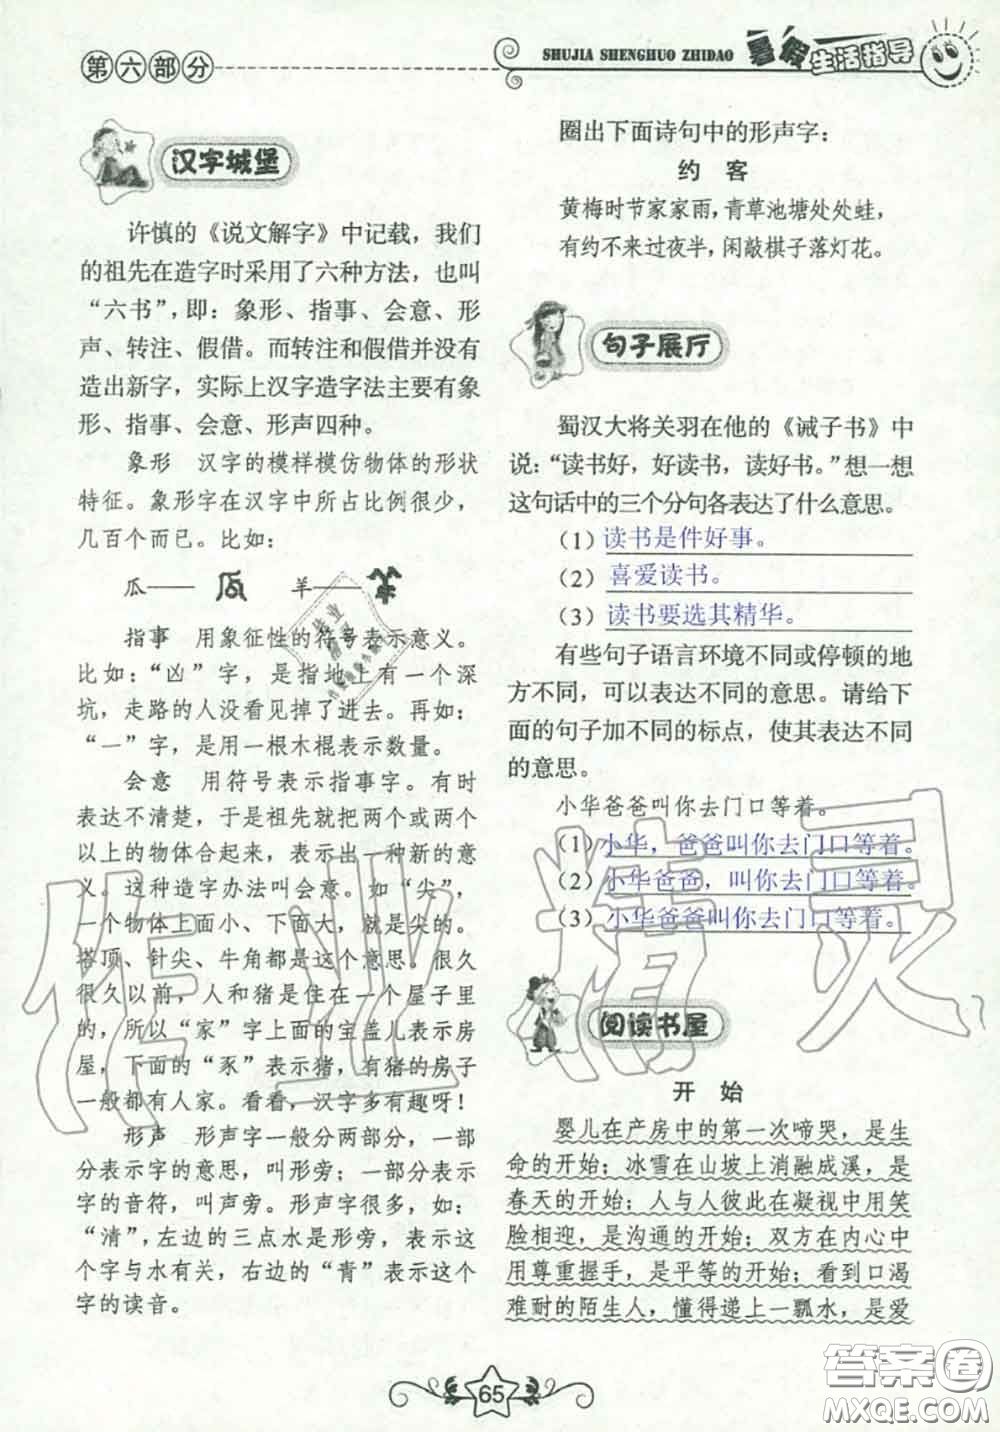 第六部分
SHUJIA SHENGHUO ZHIDAO
暑假生活指导
汉字城堡
许慎的《说文解字》中记载，我们
的祖先在造字时采用了六种方法，也叫
“六书”，即：象形、指事、会意、形
声、转注、假借。而转注和假借并没有
造出新字，实际上汉字造字法主要有象
形、指事、会意、形声四种。
象形 汉字的模样模仿物体的形状
特征。象形字在汉字中所占比例很少，
几百个而已。比如：
瓜—— 羊——
指事 用象征性的符号表示意义。
比如：“凶”字，是指地上有一个深
坑，走路的人没看见掉了进去。再如：
“一”字，是用一根木棍表示数量。
会意 用符号表示指事字。有时
表达不清楚，于是祖先用两个或两个
以上的物体合起来，表示出一种新的意
义。这种造字办法叫会意。如“尖”，
一个物体上面小、下面大，就是尖的。
塔顶、针尖、牛角都是这个意思。很久
很久以前，人和猪是住在一个屋子里
的，所以“家”字上面的宝盖儿表示房
屋，下面的“豕”表示猪，有猪的房子
一般都有人家。看看，汉字多有趣呀！
形声 形声字一般分两部分，一部
分表示字的意思，叫形旁；一部分表示
字的音符，叫声旁。形声字很多，如：
“清”，左边的三点水是形旁，表示这
个字与水有关，右边的“青”表示这个
字的读音。
圈出下面诗句中的形声字：
约 客
黄梅时节家家雨，青草池塘处处蛙，
有约不来过夜半，闲敲棋子落灯花。
句子展厅
蜀汉大将关羽在他的《诫子书》中
说：“读书好，好读书，读好书。”想一想
这句话中的三个分句各表达了什么意思。
（1）读书是件好事。
（2）喜爱读书。
（3）读书要选其精华。
有些句子语言环境不同或停顿的地
方不同，可以表达不同的意思。请给下
面的句子加不同的标点，使其表达不同
的意思。
小华爸爸叫你去门口等着。
（1）小华，爸爸叫你去门口等着。
（2）小华爸爸，叫你去门口等着。
（3）小华爸爸叫你去门口等着。
阅读书屋
开 始
婴儿在产房中的第一次啼哭，是生
命的开始；冰雪在山坡上消融成溪，是
春天的开始；人与人彼此在凝视中用笑
脸相迎，是沟通的开始；双方在内心中
用尊重握手，是平等的开始；看到口渴
难耐的陌生人，懂得递上一瓢水，是爱
65
作业精灵
答案圈
MXQE.COM